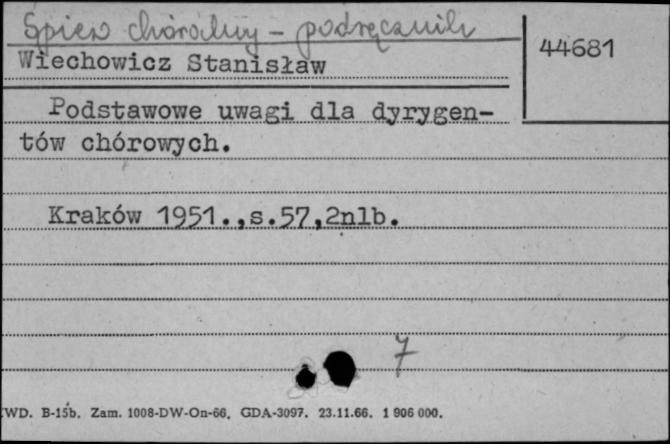 Śpiew chóralny - podręcznik
44681
Wiechowicz Stanisław
Podstawowe uwagi dla dyrygen-
tów chórowych.
Kraków 1951.,s.57,2nlb.
7
WD. B-15b. Zam. 1008-DW-On-66. GDA-3097. 23.11.66. 1 906 000.